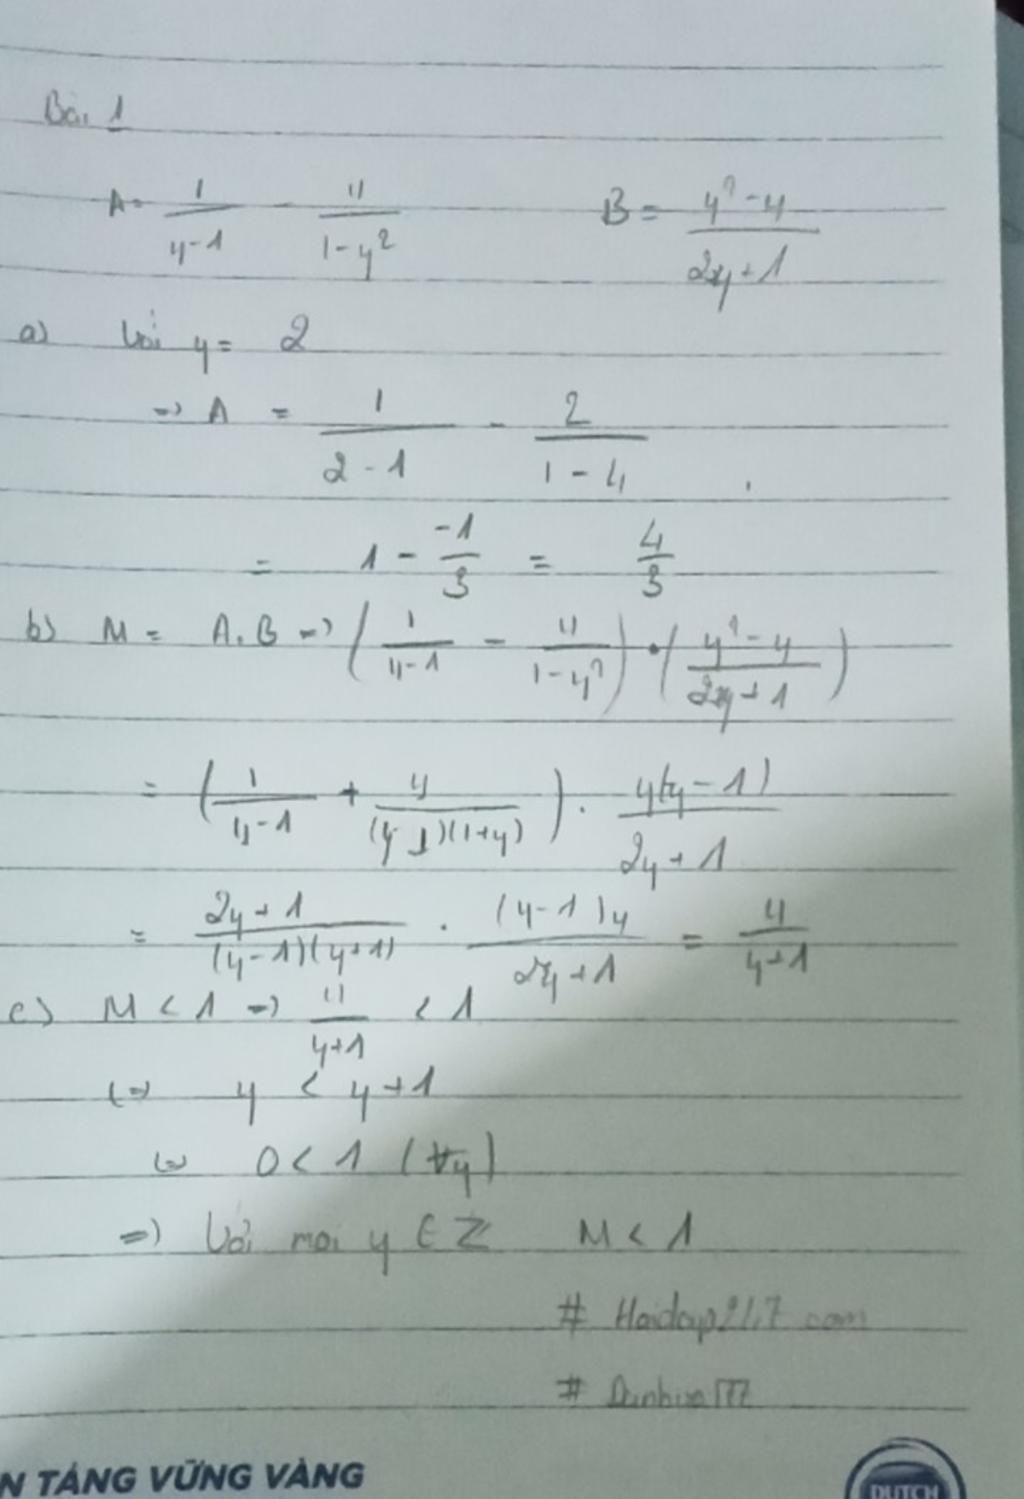 Bài 1
A = 1/(y-1) - y/(1-y²) B = (y²-y)/(2y+1)
a) Với y = 2
=> A = 1/(2-1) - 2/(1-4)
= 1 - -1/3 = 4/3
b) M = A.B => (1/(y-1) - y/(1-y²)) . ((y²-y)/(2y+1))
= (1/(y-1) + y/((y-1)(1+y))) . y(y-1)/(2y+1)
= (2y+1)/((y-1)(y+1)) . (y-1)y/(2y+1) = y/(y+1)
c) M < 1 => y/(y+1) < 1
<=> y < y+1
<=> 0 < 1 (∀y)
=> Với mọi y ∈ Z M < 1
#
#
N TẢNG VỮNG VÀNG
DUTCH